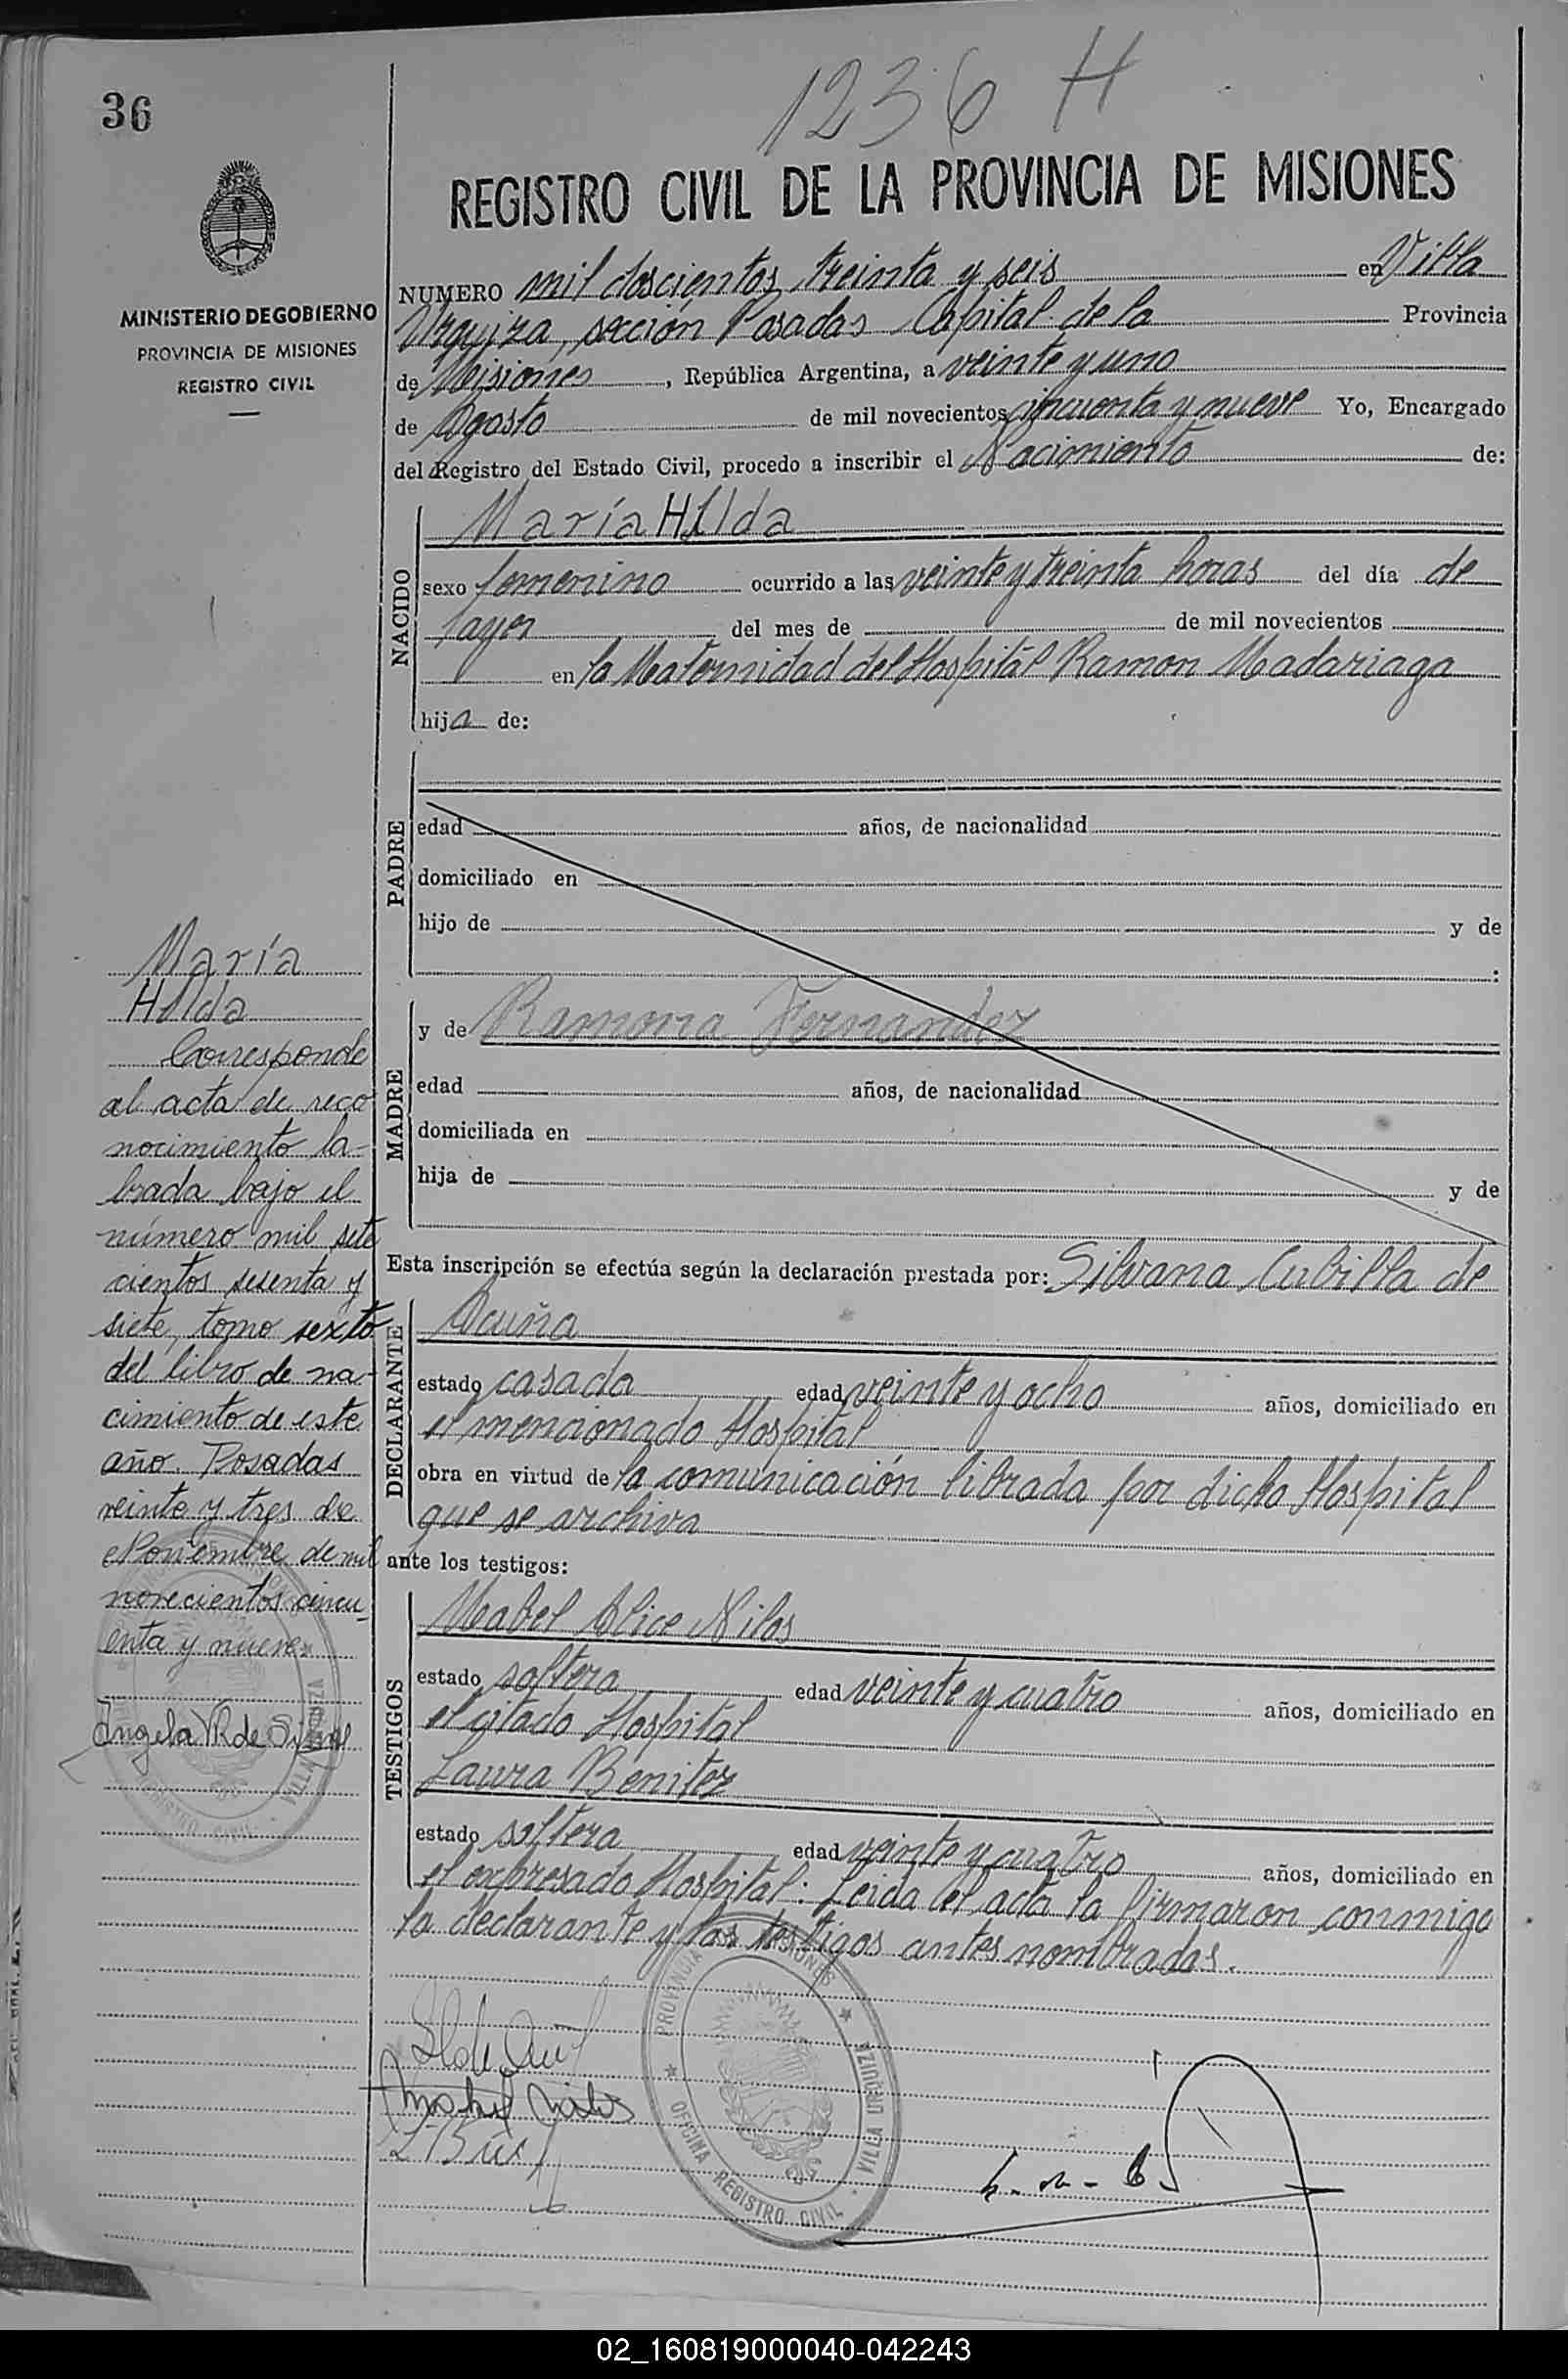 36
1236 H
REGISTRO CIVIL DE LA PROVINCIA DE MISIONES
MINISTERIO DE GOBIERNO
PROVINCIA DE MISIONES
REGISTRO CIVIL
NUMERO mil doscientos treinta y seis en Villa
Urquiza, sección Posadas Capital de la Provincia
de Misiones, República Argentina, a veinte y uno
de Agosto de mil novecientos cincuenta y nueve Yo, Encargado
del Registro del Estado Civil, procedo a inscribir el Nacimiento de:
NACIDO
María Hilda
sexo femenino ocurrido a las veinte y treinta horas del día de
ayer del mes de de mil novecientos
en la Maternidad del Hospital Ramon Madariaga
hija de:
PADRE
edad años, de nacionalidad
domiciliado en
hijo de y de
:
MADRE
y de Ramona Fernandez
edad años, de nacionalidad
domiciliada en
hija de y de
Esta inscripción se efectúa según la declaración prestada por: Silvana Cubilla de
DECLARANTE
Acuña
estado casada edad veinte y ocho años, domiciliado en
el mencionado Hospital
obra en virtud de la comunicación librada por dicho Hospital
que se archiva
ante los testigos:
TESTIGOS
Mabel Alice Nilos
estado soltera edad veinte y cuatro años, domiciliado en
el citado Hospital
Laura Benitez
estado soltera edad veinte y cuatro años, domiciliado en
el expresado Hospital: Leida el acta la firmaron conmigo
la declarante y las testigos antes nombradas.
PROVINCIA MISIONES
OFICINA REGISTRO CIVIL
VILLA URQUIZA
María
Hilda
Corresponde
al acta de reco
nocimiento la-
brada bajo el
número mil sete
cientos sesenta y
siete, tomo sexto
del libro de na-
cimiento de este
año. Posadas
veinte y tres de
Noviembre de mil
novecientos cincu_
enta y nueve.
Angela VR de
REGISTRO CIVIL
VILLA URQUIZA
02_160819000040-042243